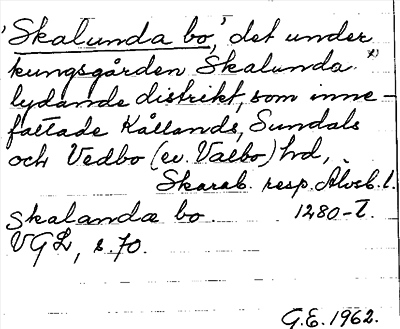 'Skalunda bo,' det under
kungsgården Skalunda x)
lydande distrikt, som inne-
fattade Kållands, Sundals
och Vedbo (ev. Valbo) hd,
Skarab. resp. Älvsb. l.
skalandæ bo 1280-t.
VGL, s. 70.
G.E. 1962.